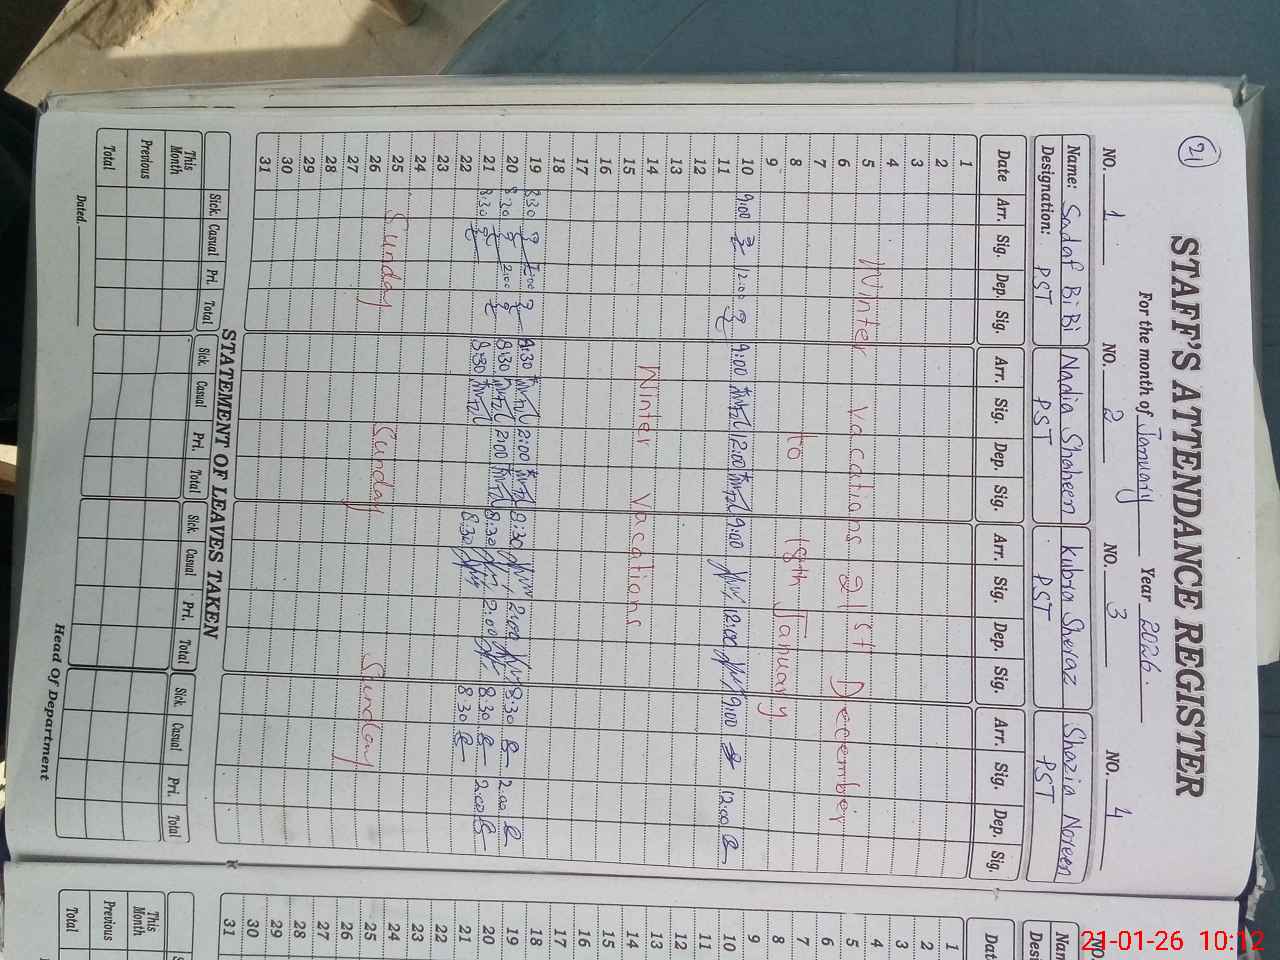 21
STAFF'S ATTENDANCE REGISTER
For the month of January Year 2026.
NO. 1 NO. 2 NO. 3 NO. 4
Name: Sadaf BiBi Nadia Shaheen Kubra Sheraz Shazia Noreen
Designation: PST PST PST PST
Date Arr. Sig. Dep. Sig. Arr. Sig. Dep. Sig. Arr. Sig. Dep. Sig. Arr. Sig. Dep. Sig.
1
2
3
4
5 Winter vacations 21st December
6
7
8 to 18th January
9
10 9:00 12:00 9:00 12:00 9:00 12:00 9:00 12:00
11
12
13
14 Winter vacations
15
16
17
18
19 8:30 2:00 8:30 2:00 8:30 2:00 8:30 2:00
20 8:30 2:00 8:30 2:00 8:30 2:00 8:30 2:00
21 8:30 8:30 8:30 8:30
22
23
24
25 Sunday Sunday Sunday
26
27
28
29
30
31
STATEMENT OF LEAVES TAKEN
Sick. Casual Pri. Total Sick. Casual Pri. Total Sick. Casual Pri. Total Sick. Casual Pri. Total
This Month
Previous
Total
Dated.
Head Of Department
NO.
Date
1
2
3
4
5
6
7
8
9
10
11
12
13
14
15
16
17
18
19
20
21
22
23
24
25
26
27
28
29
30
31
This Month
Previous
Total
21-01-26 10:12